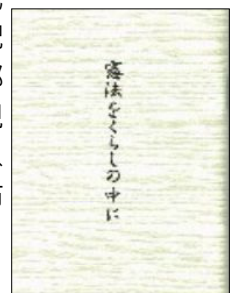 憲法をくらしの中に